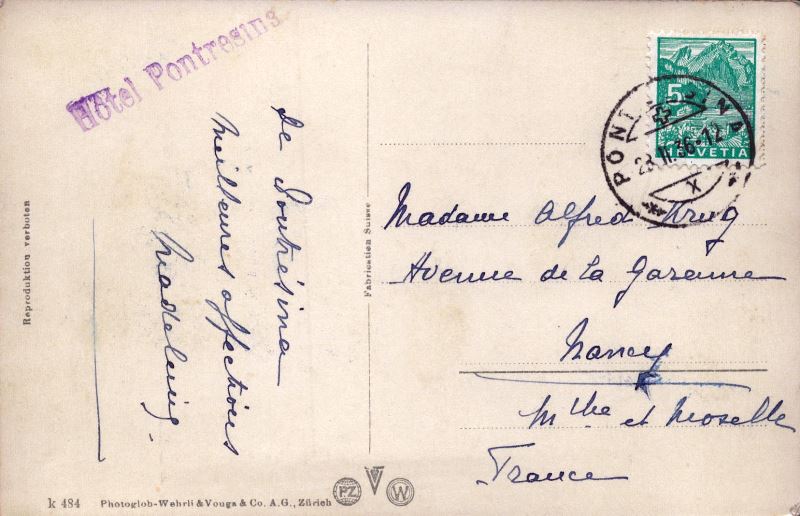 Hôtel Pontresina
De Pontrésina
meilleures affections
5
HELVETIA
PONTRESINA
23.II.36-12
X
Madame Alfred Krug
Avenue de la Garenne
Nancy
Mthe et Moselle
France
Reproduktion verboten
Fabrication Suisse
k 484 Photoglob-Wehrli & Vouga & Co. A.G., Zürich
PZ
V
W